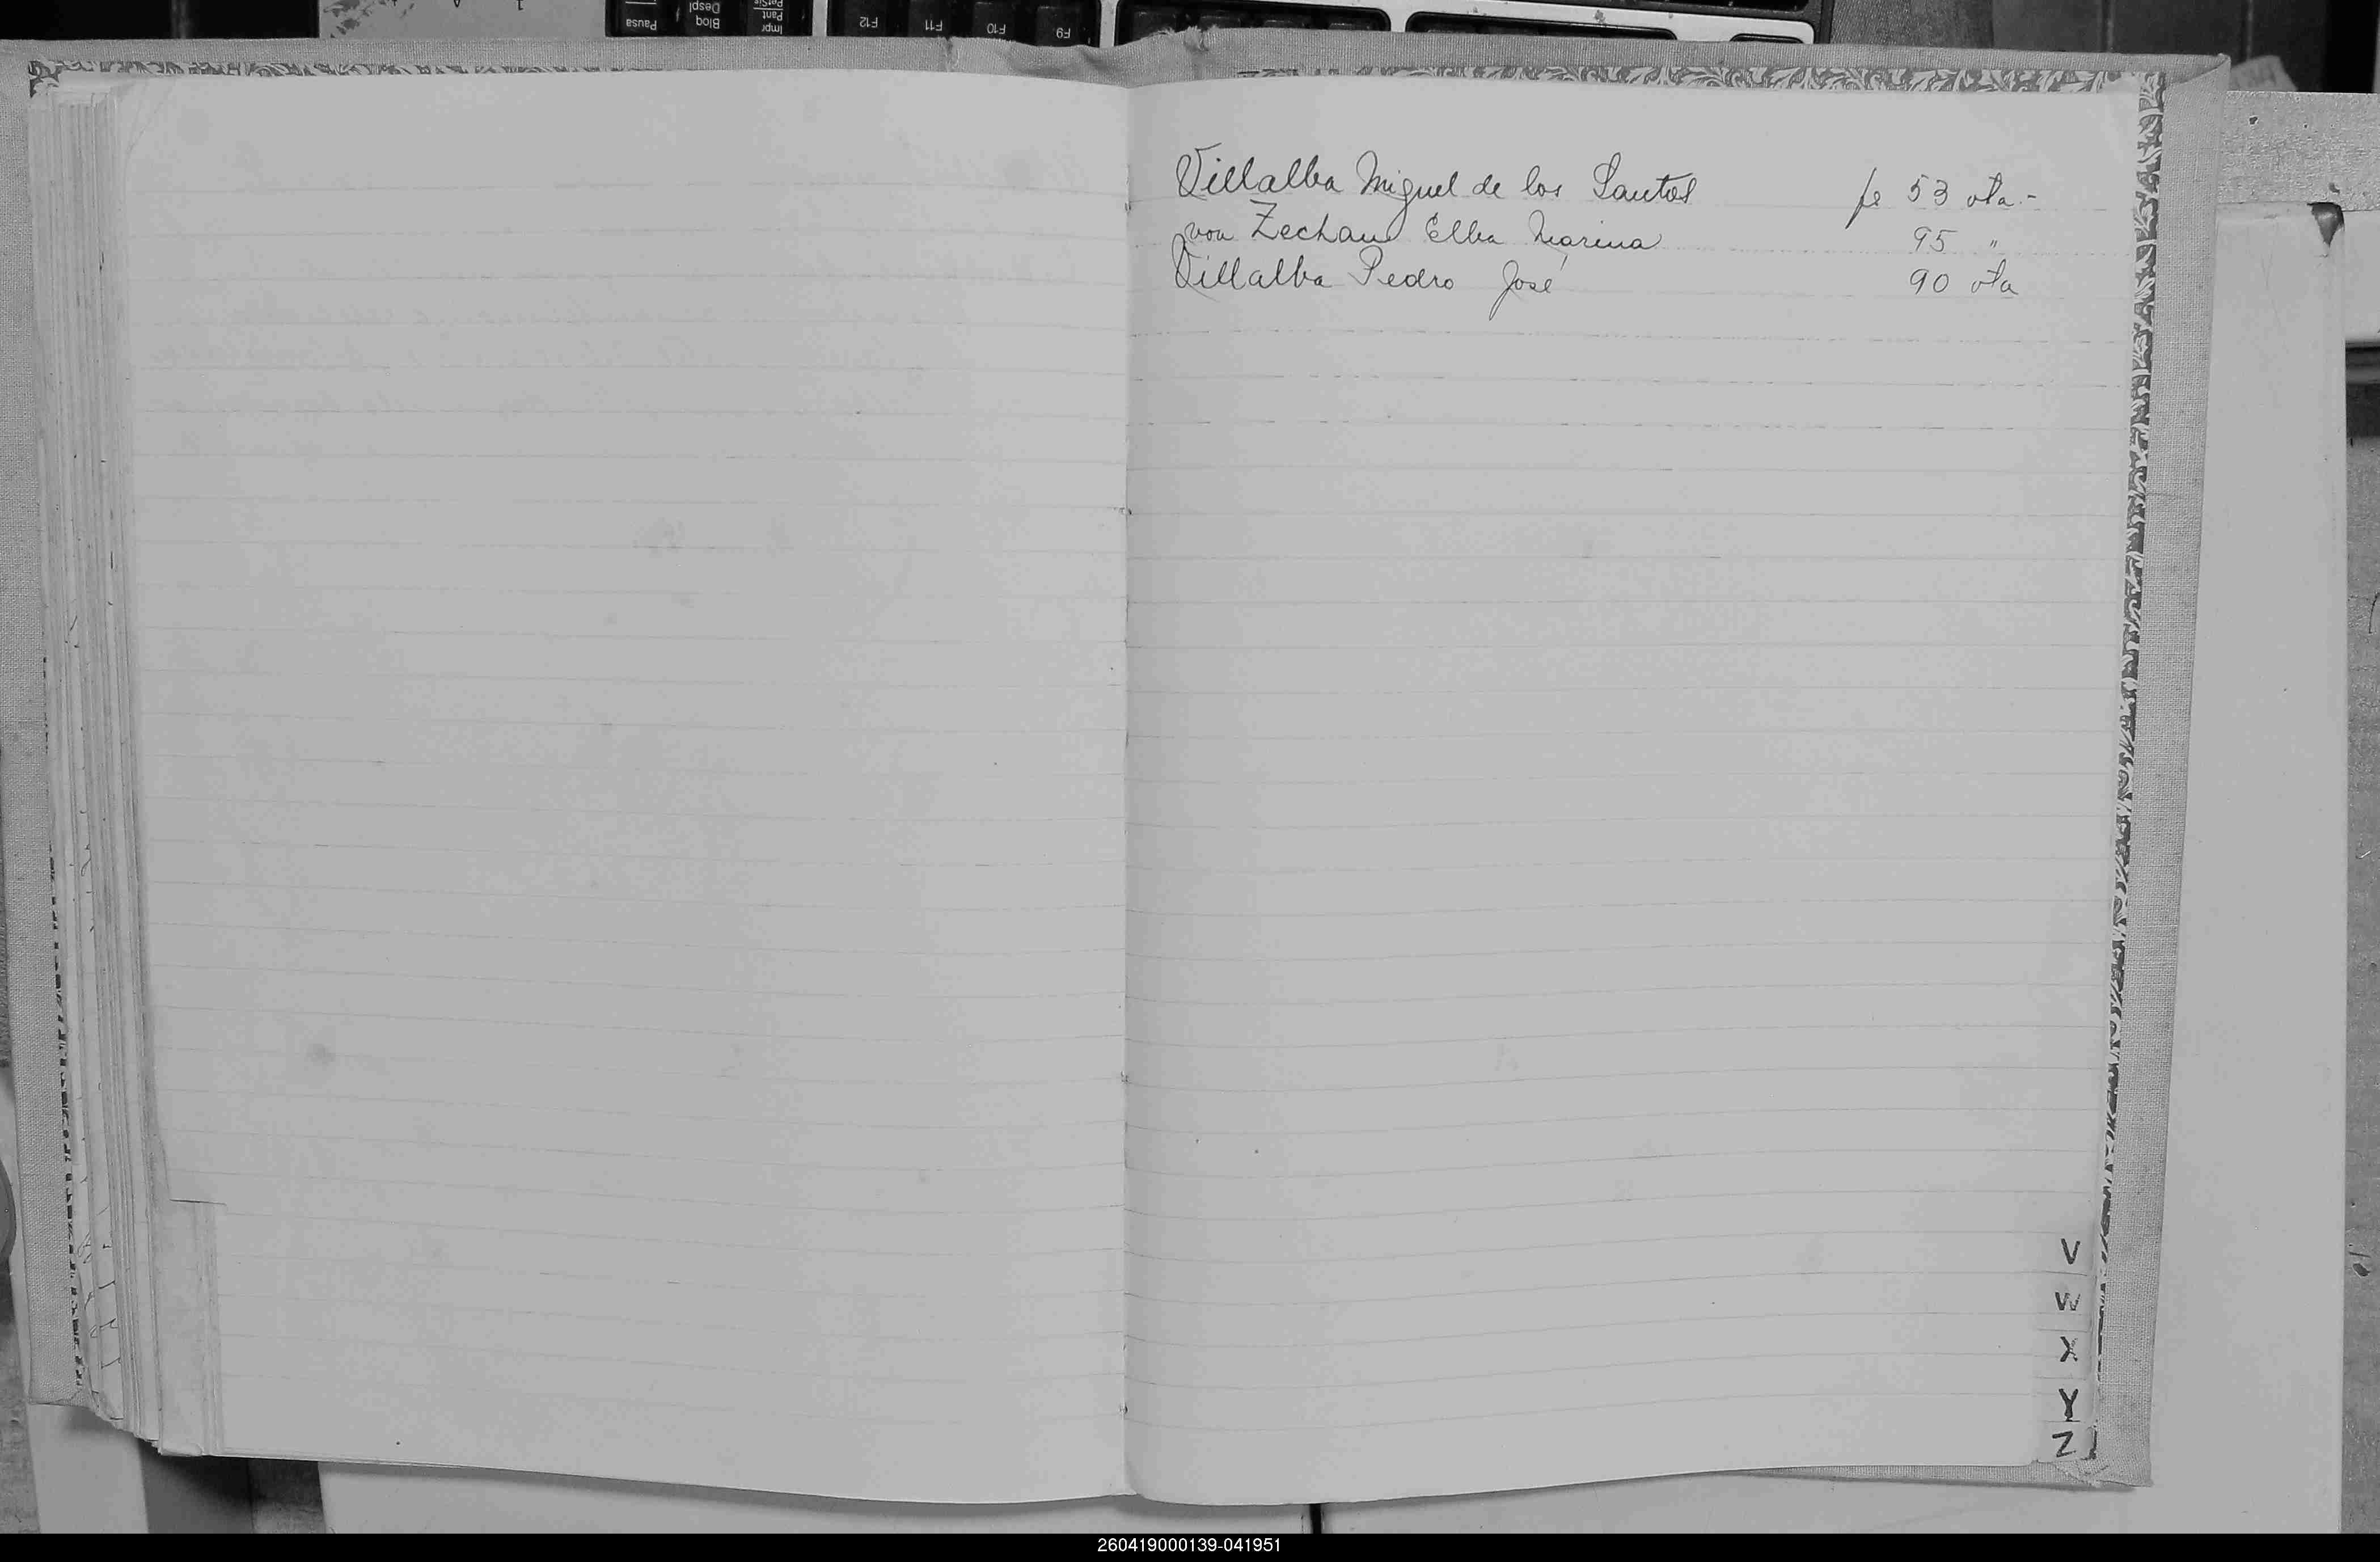 Pausa
Bloq
Despl
Impr
Pant
PetSis
F12
F11
F10
F9
Villalba Miguel de los Santos fe 53 vta.-
von Zechau Elba Marina 95 "
Villalba Pedro José 90 vta
V
W
X
Y
Z
260419000139-041951